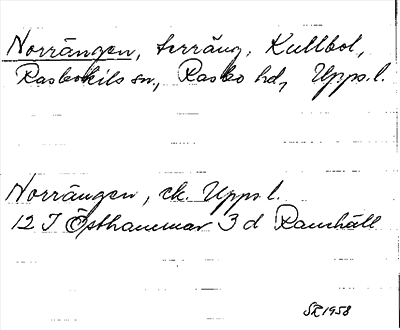 Norrängen, terräng, Kullbol,
Rasbokils sn, Rasbo hd, Upps. l.
Norrängen, ek. Upps l.
12 I Östhammar 3 d Ramhäll
SR 1958